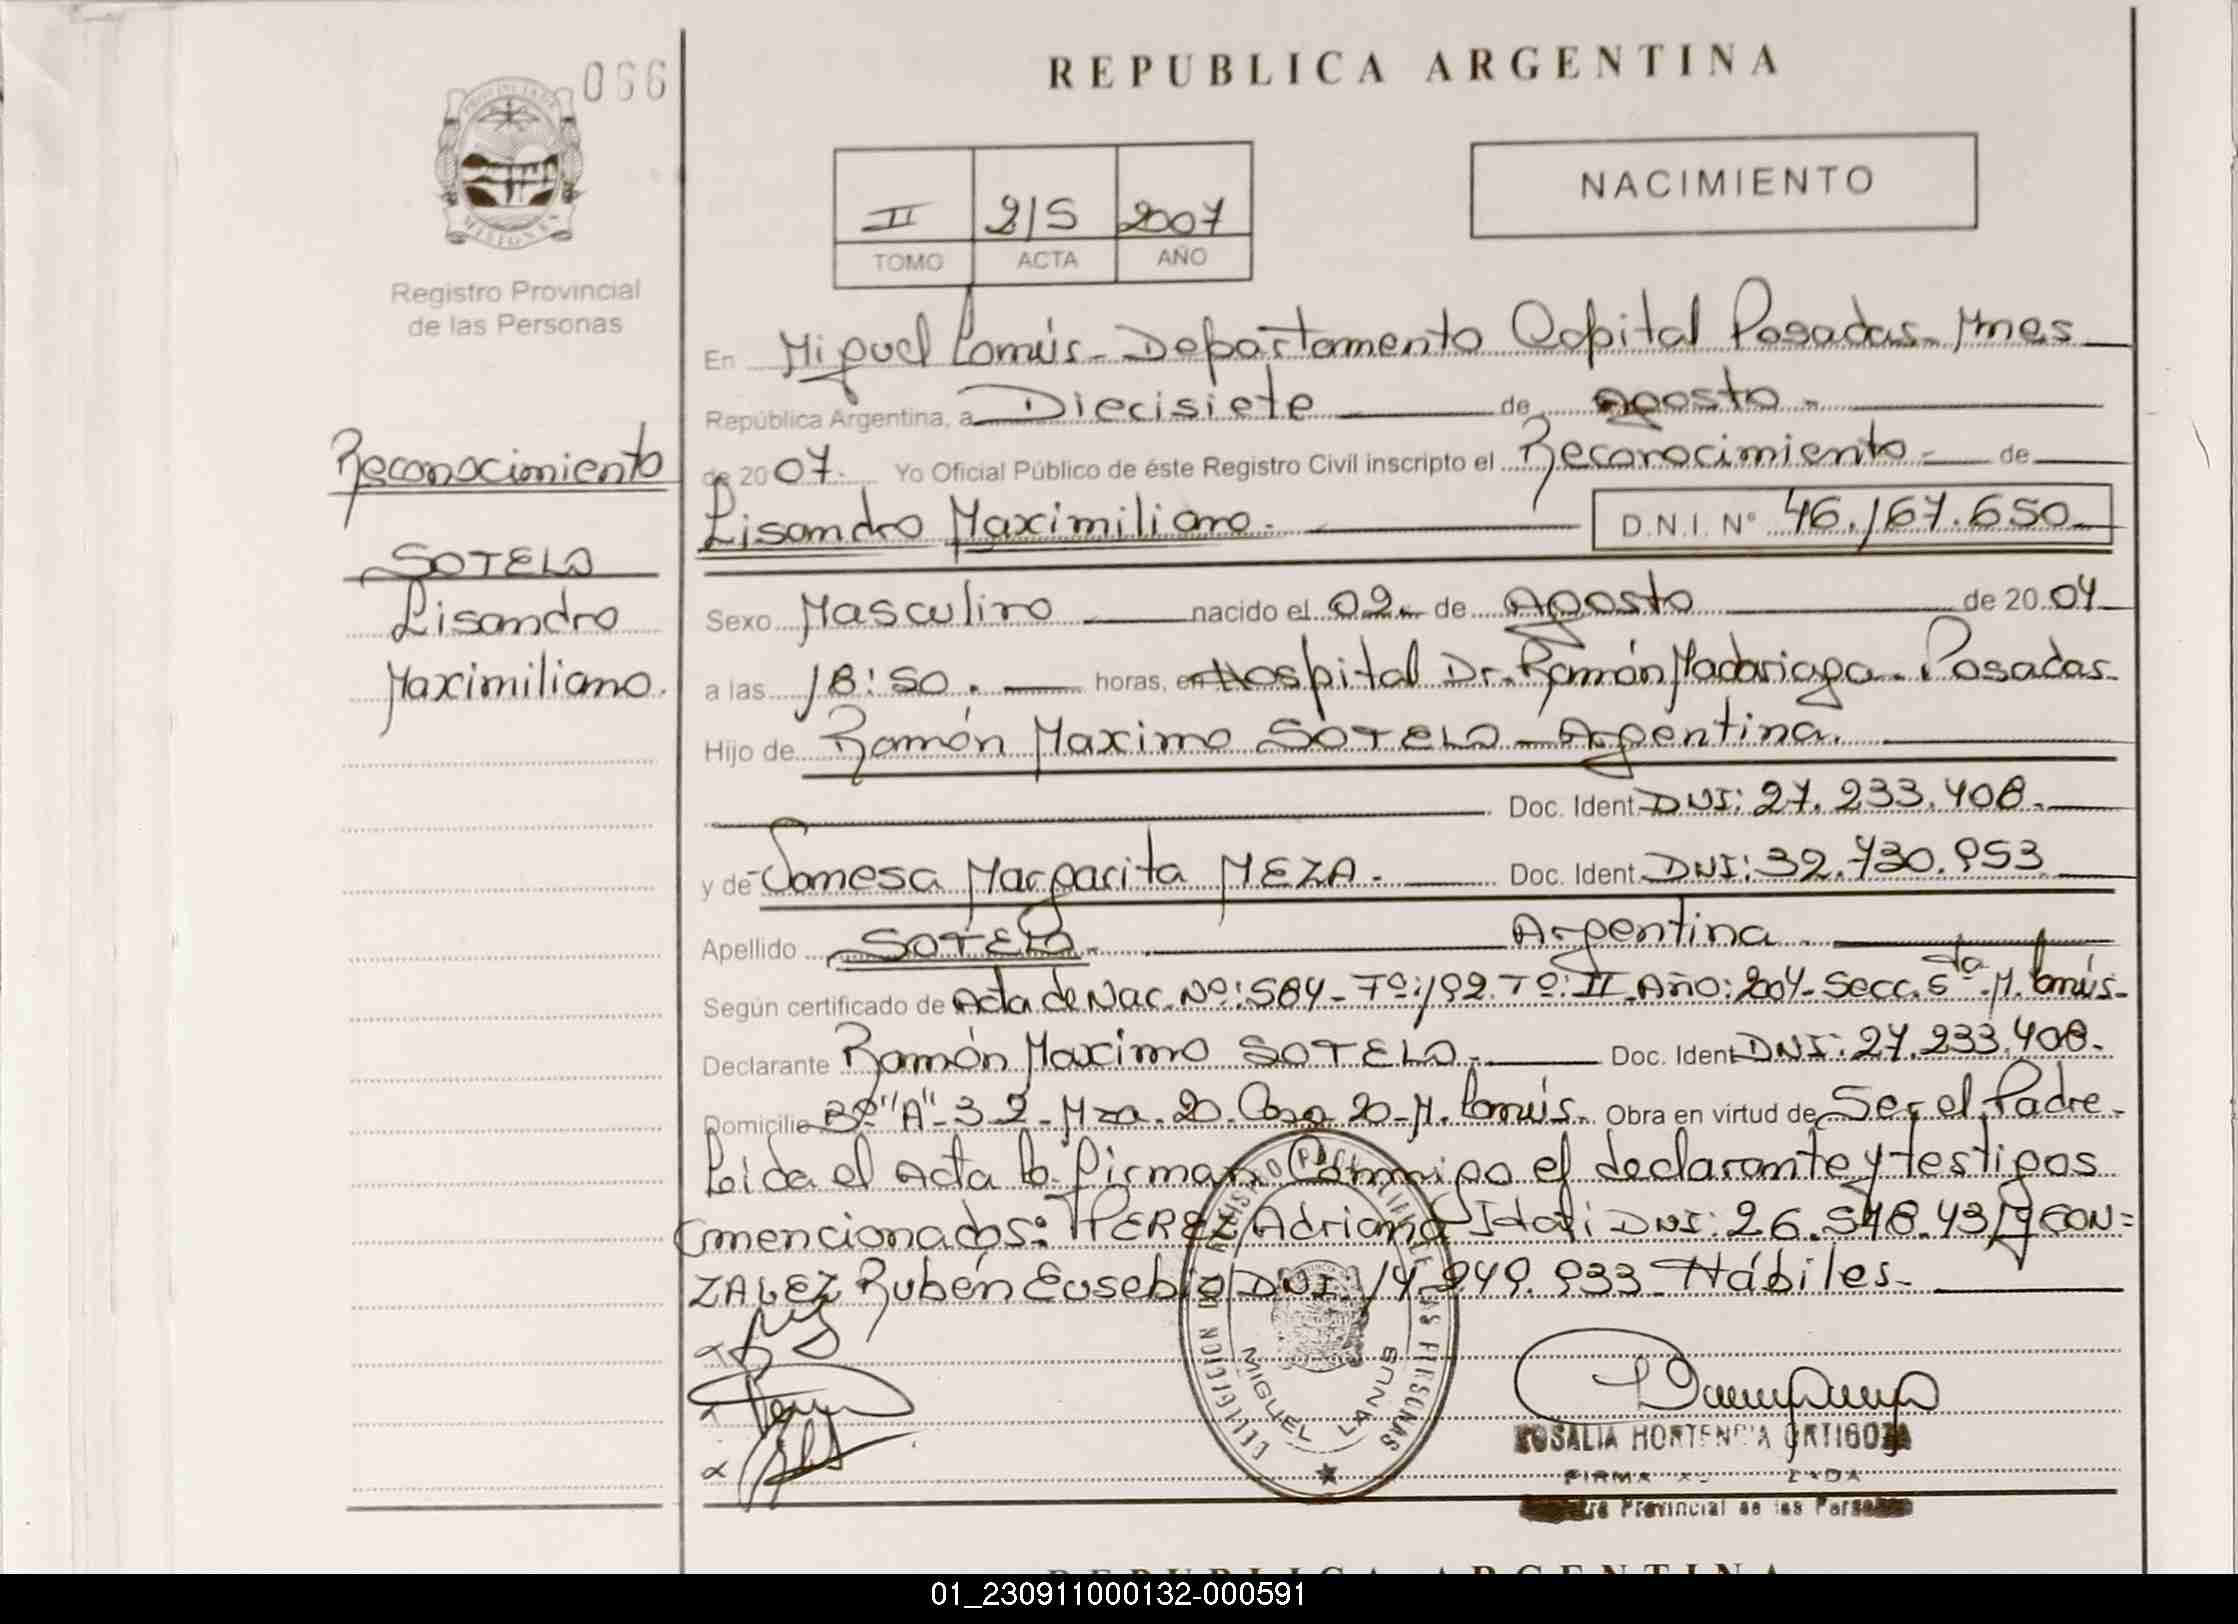 066
REPUBLICA ARGENTINA
PROVINCIA DE
MISIONES
Registro Provincial
de las Personas
II 215 2007
TOMO ACTA AÑO
NACIMIENTO
En Miguel Lanús - Departamento Capital Posadas - Mnes
República Argentina, a Diecisiete de agosto -
de 2007. Yo Oficial Público de éste Registro Civil inscripto el Reconocimiento - de
Lisandro Maximiliano. D.N.I. N° 46.167.650
Reconocimiento
SOTELO
Lisandro
Maximiliano.
Sexo Masculino nacido el 02. de Agosto de 2004
a las 18:50. horas, en Hospital Dr. Ramón Madariaga. Posadas.
Hijo de Ramón Maximo SOTELO - Argentina.
Doc. Ident. DNI: 27.233.408.
y de Margarita MEZA. Doc. Ident. DNI: 32.730.953
Apellido SOTELO Argentina
Según certificado de Acta de Nac. Nº: 584 - Fº: 192. Tº: II. Año: 2004 - Secc. 5ta. M. Lanús.
Declarante Ramón Maximo SOTELO. Doc. Ident DNI: 27.233.408.
Domicilio Bº "A"-3-2 - Mza. 20. Casa 20 - M. Lanús. Obra en virtud de Ser el Padre.
Leida el Acta la firman Conmigo el declarante y testigos
mencionados: PEREZ Adriana Itatí DNI: 26.548.431 y GON=
ZALEZ Rubén Eusebio DNI. 14.949.933 Hábiles.
MIGUEL LANUS
ROSALIA HORTENCIA ORTIGOZA
FIRMA
Provincial de las Personas
REPUBLICA ARGENTINA
01_230911000132-000591